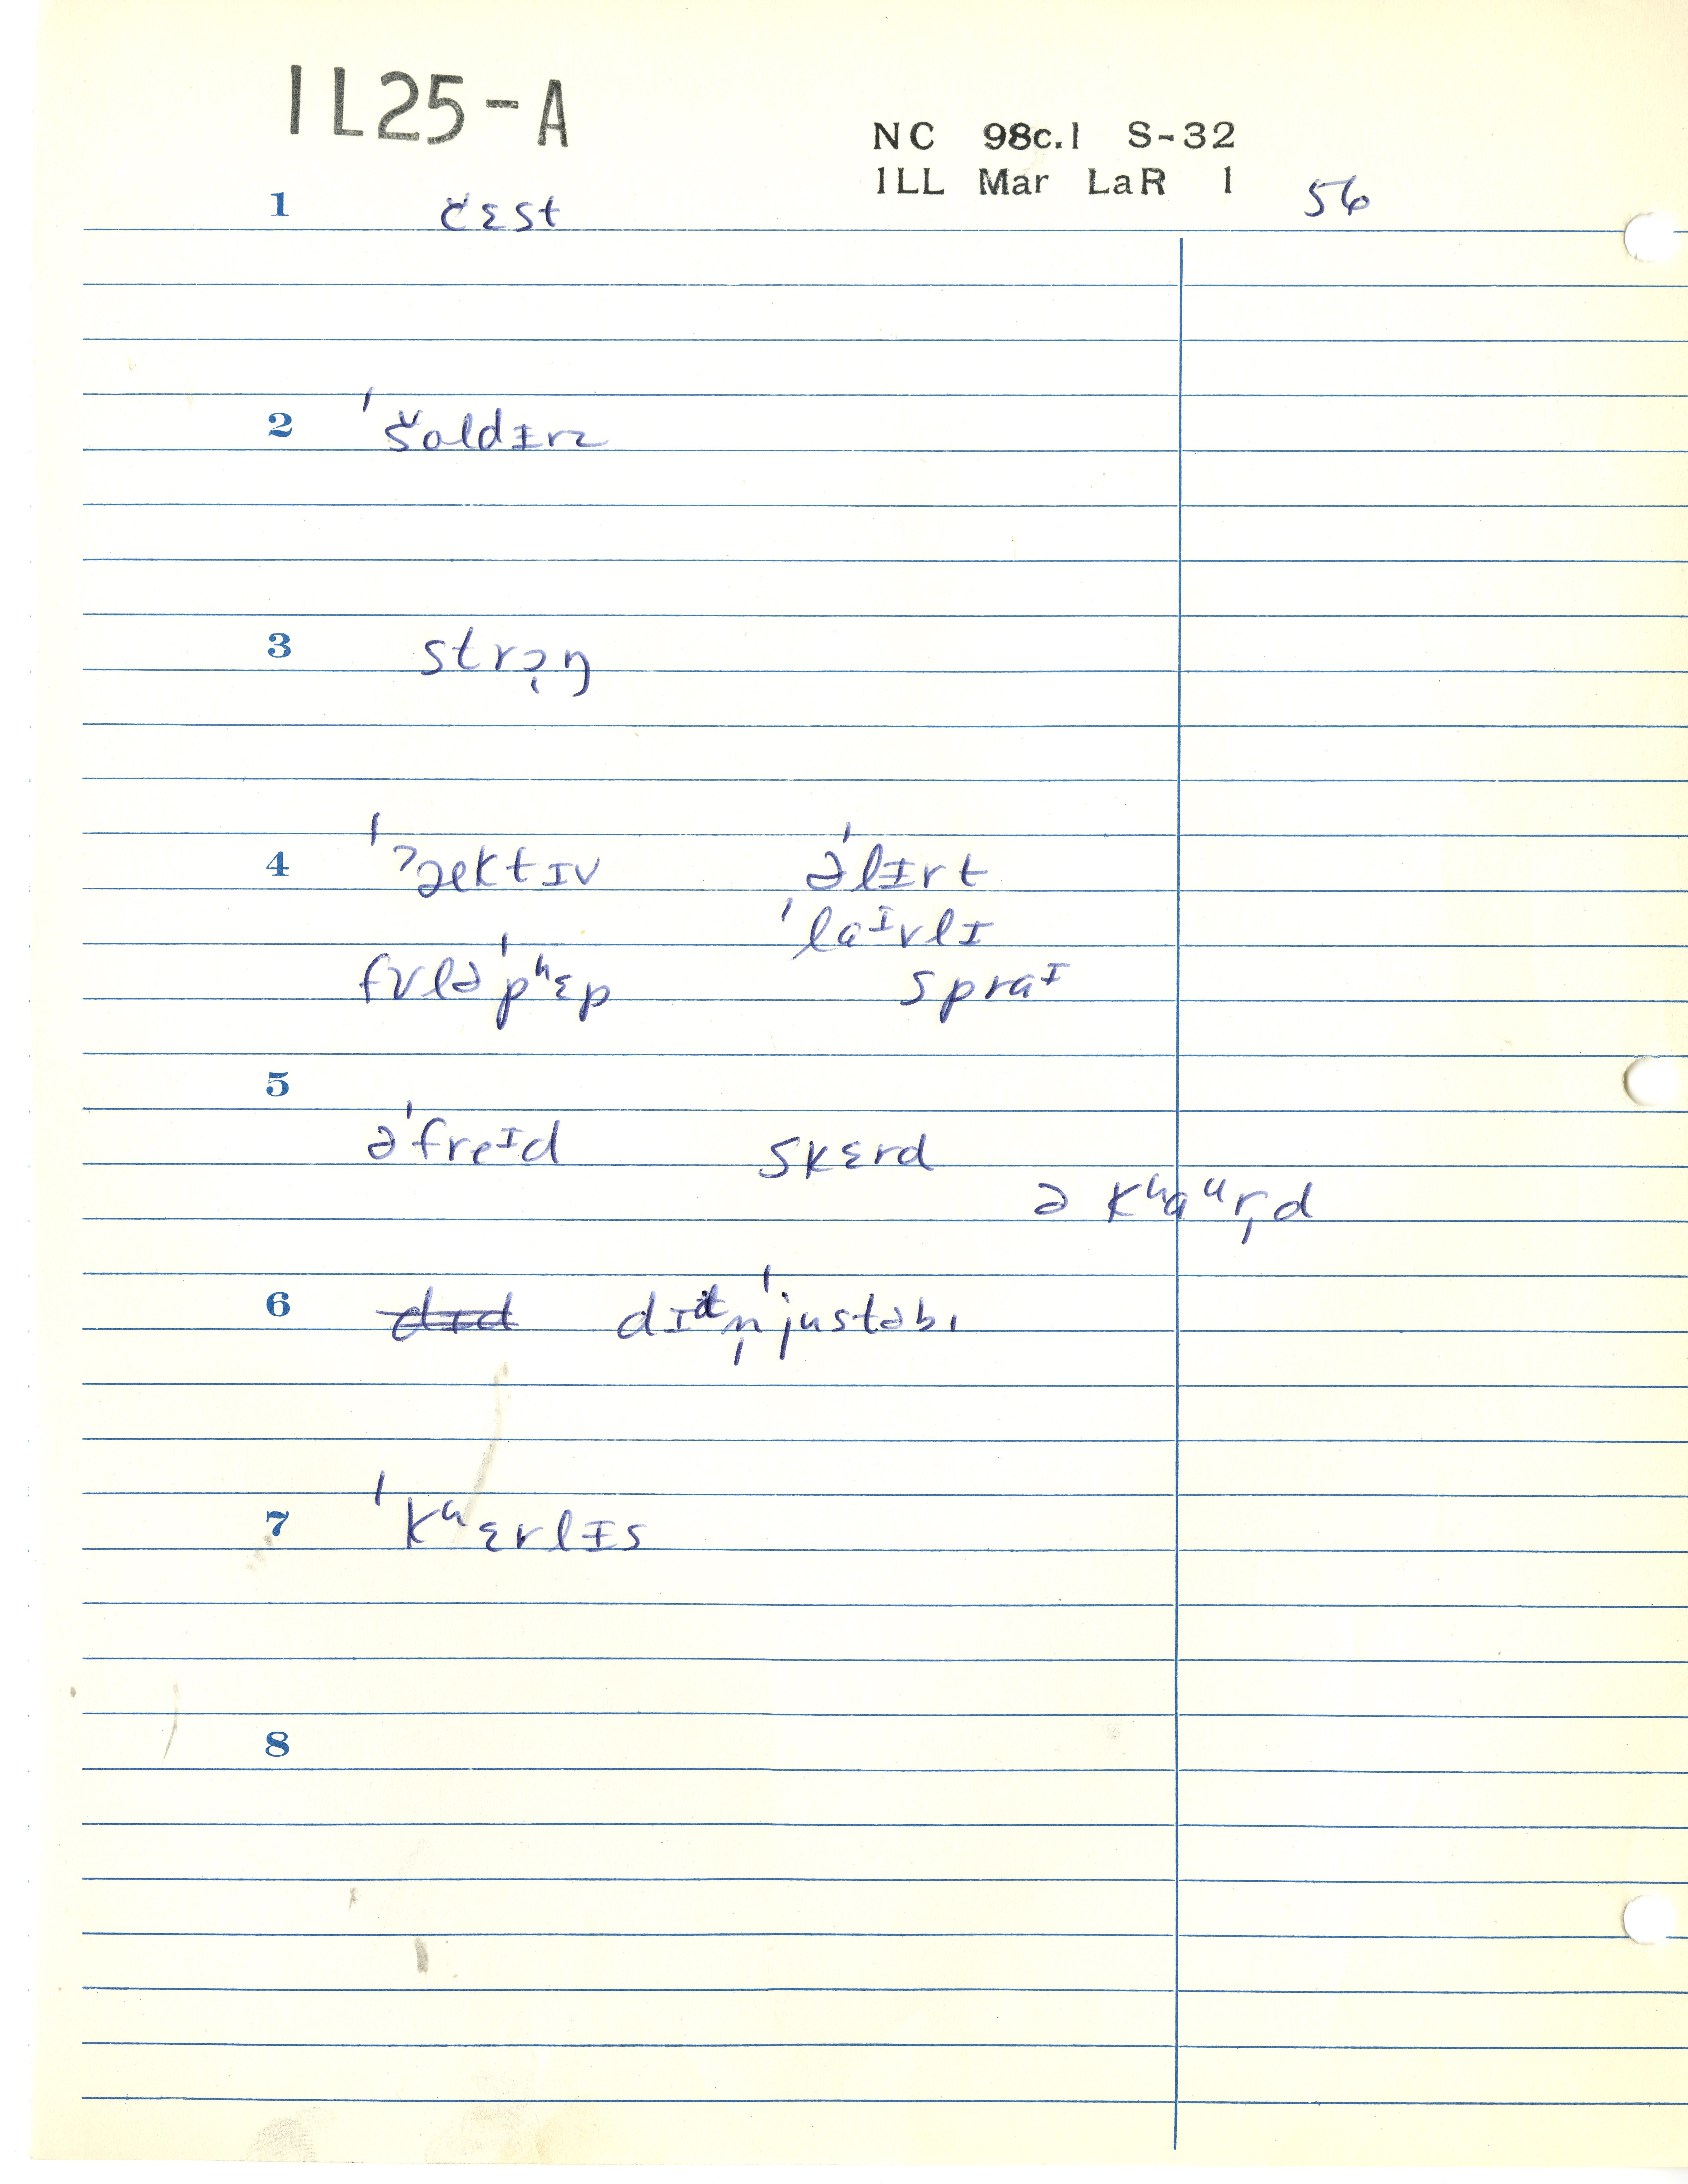 1L25-A
NC 98c.1 S-32
1LL Mar LaR 1 56
1 čɛst
2 ˈšoldɪrz
3 strɔ̩ŋ
4 ˈʔækt‌ɪv əˈlɪrt
ˈlaᶦvlɪ
fʊləˈpʰɛp spraᶦ
5
əˈfreᶦd skɛrd
ə kʰaᵘr̩d
6 dɪᵗn̩ˈjustəbɪ
7 ˈkʰɛrlɪs
8